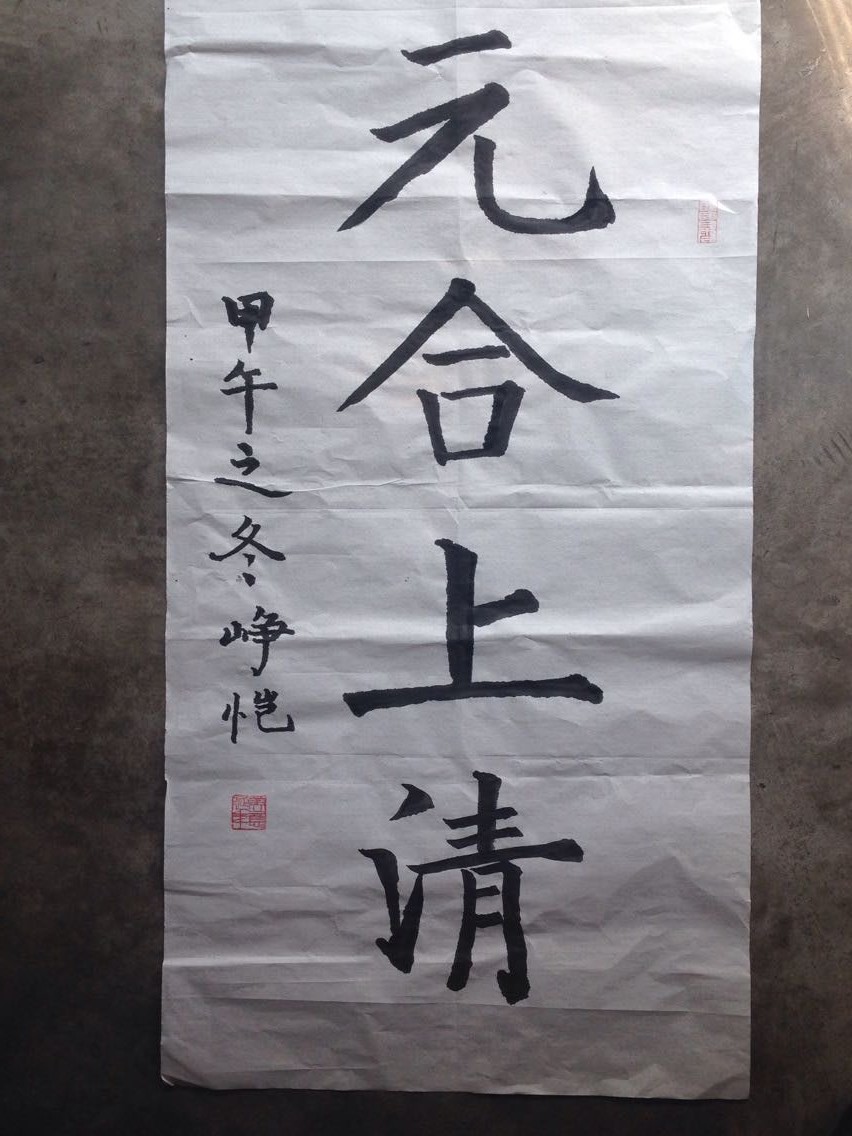 元合上清
甲午之冬峥恺